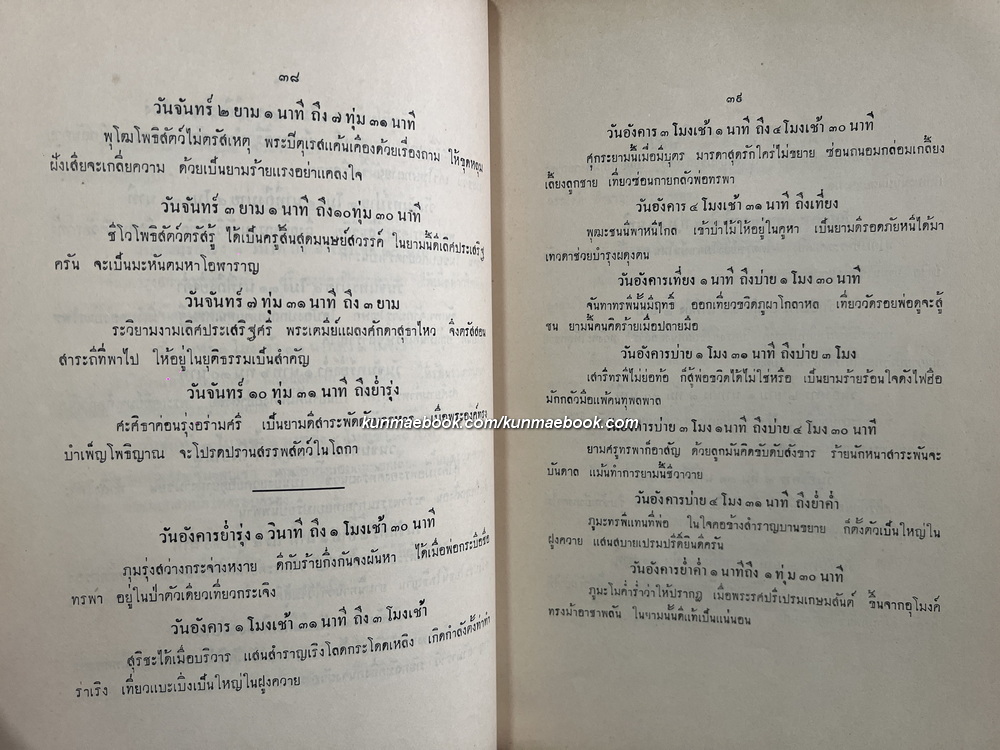 ๓๘
วันจันทร์ ๒ ยาม ๑ นาที ถึง ๗ ทุ่ม ๓๑ นาที
พุโฒโพธิสัตว์ไม่ตรัสเหตุ พระบีตุเรสแค้นเคืองด้วยเรื่องถาม ให้ขุดหลุม
ฝั่งเสียจะเกลี่ยความ ด้วยเป็นยามร้ายแรงอย่าแคลงใจ
วันจันทร์ ๓ ยาม ๑ นาที ถึง๑๐ทุ่ม ๓๐ นาที
ชีโวโพธิสัตว์ตรัสรู้ ได้เป็นครูสั้นสุดมนุษย์สวรรค์ ในยามนี้ดีเลิศประเสริฐ
ครัน จะเป็นมะหันตมหาโอฬาราญ
วันจันทร์ ๗ ทุ่ม ๓๑ นาที ถึง ๓ ยาม
ระวิยามงามเลิศประเสริฐศรี พระเตมีย์แผลงศักดาสุธาไหว จึงตรัสสอน
สาระถีที่พาไป ให้อยู่ในยุติธรรมเป็นสำคัญ
วันจันทร์ ๑๐ ทุ่ม ๓๑ นาที ถึงย่ำรุ่ง
ศะศิธาค่อนรุ่งอร่ามศรี เป็นยามดีสาระพัด เมื่อพระองค์ทรง
บำเพ็ญโพธิญาณ จะโปรดปรานสรรพสัตว์ในโลกา
วันอังคารย่ำรุ่ง ๑ วินาที ถึง ๑ โมงเช้า ๓๐ นาที
ภุมรุ่งสว่างกระจ่างหงาย ดีกับร้ายกึ่งกันจงผันหา ได้เมื่อพ่อกระบือชื่อ
ทรพา อยู่ในป่าตัวเดียวเที่ยวกระเจิง
วันอังคาร ๑ โมงเช้า ๓๑ นาที ถึง ๓ โมงเช้า
สุริชะได้เมื่อบริวาร แสนสำราญเริงโลดกระโดดเหลิง เกิดกำลังตั้งท่าทำ
ร่าเริง เที่ยวแบะเบิ่งเป็นใหญ่ในฝูงควาย
๓๙
วันอังคาร ๓ โมงเช้า ๑ นาที ถึง ๔ โมงเช้า ๓๐ นาที
ศุกระยามนี้เมื่อมีบุตร มารดาสุดรักใคร่ไม่ขยาย ซ่อนถนอมกล่อมเกลี้ยง
เลี้ยงลูกชาย เที่ยวซ่อนกายกลัวพ่อทรพา
วันอังคาร ๔ โมงเช้า ๓๑ นาที ถึงเที่ยง
พุฒะชนนีพาหนีไกล เข้าป่าไม้ให้อยู่ในคูหา เป็นยามดีรอดภัยหนีได้มา
เทวดาช่วยบำรุงผดุงตน
วันอังคารเที่ยง ๑ นาที ถึงบ่าย ๑ โมง ๓๐ นาที
จันทาทรพีนั้นมีฤทธิ์ ออกเที่ยวขวิดภูผาโกลาหล เที่ยววัดรอยพ่อดูจะสู้
ชน ยามนี้คนคิดร้ายเมื่อปลายมือ
วันอังคารบ่าย ๑ โมง ๓๑ นาที ถึงบ่าย ๓ โมง
เสาร์ทรพีไม่ย่อท้อ ก็สู้พ่อขวิดได้ไม่ใช่หรือ เป็นยามร้ายร้อนใจดังไฟฮือ
มักกลัวมือแพ้คนทุพลพาล
kunmaebook.com/kunmaebook.com
วันอังคารบ่าย ๓ โมง ๑นาที ถึงบ่าย ๔ โมง ๓๐ นาที
ยามครูทรพาก็อาสัญ ด้วยลูกมันคิดขับดับสังขาร ร้ายนักหนาสาระพันจะ
บันดาล แม้นทำการยามนี้ชีวาวาย
วันอังคารบ่าย ๔ โมง ๓๑ นาที ถึงย่ำค่ำ
ภูมะทรพีแทนที่พ่อ ในใจคอข้างสำราญบานขยาย ก็ตั้งตัวเป็นใหญ่ใน
ฝูงควาย แสนสบายเปรมปรีดิ์ยินดีครัน
วันอังคารย่ำค่ำ ๑ นาทีถึง ๑ ทุ่ม ๓๐ นาที
ภูมะโมค่ำร่ำว่าให้ปรากฏ เมื่อพระรศปรีเปรมเกษมสันต์ ขึ้นจากอุโมงค์
ทรงม้าอาชาพลัน ในยามนั้นดีแท้เป็นแน่นอน